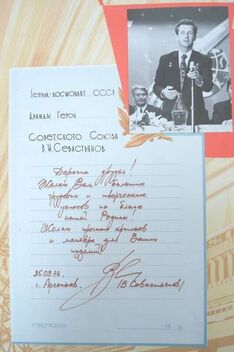 Летчик-космонавт СССР
Дважды Герой
Советского Союза
В.И. Севастьянов
Дорогие друзья!
Желаю Вам больших
трудовых и творческих
успехов на благо
нашей Родины!
Желаю прочных крыльев
и маневра для Ваших
изделий!
25.09.79
г. Арсеньев
/В Севастьянов/
УТВЕРЖДАЮ
19 г.